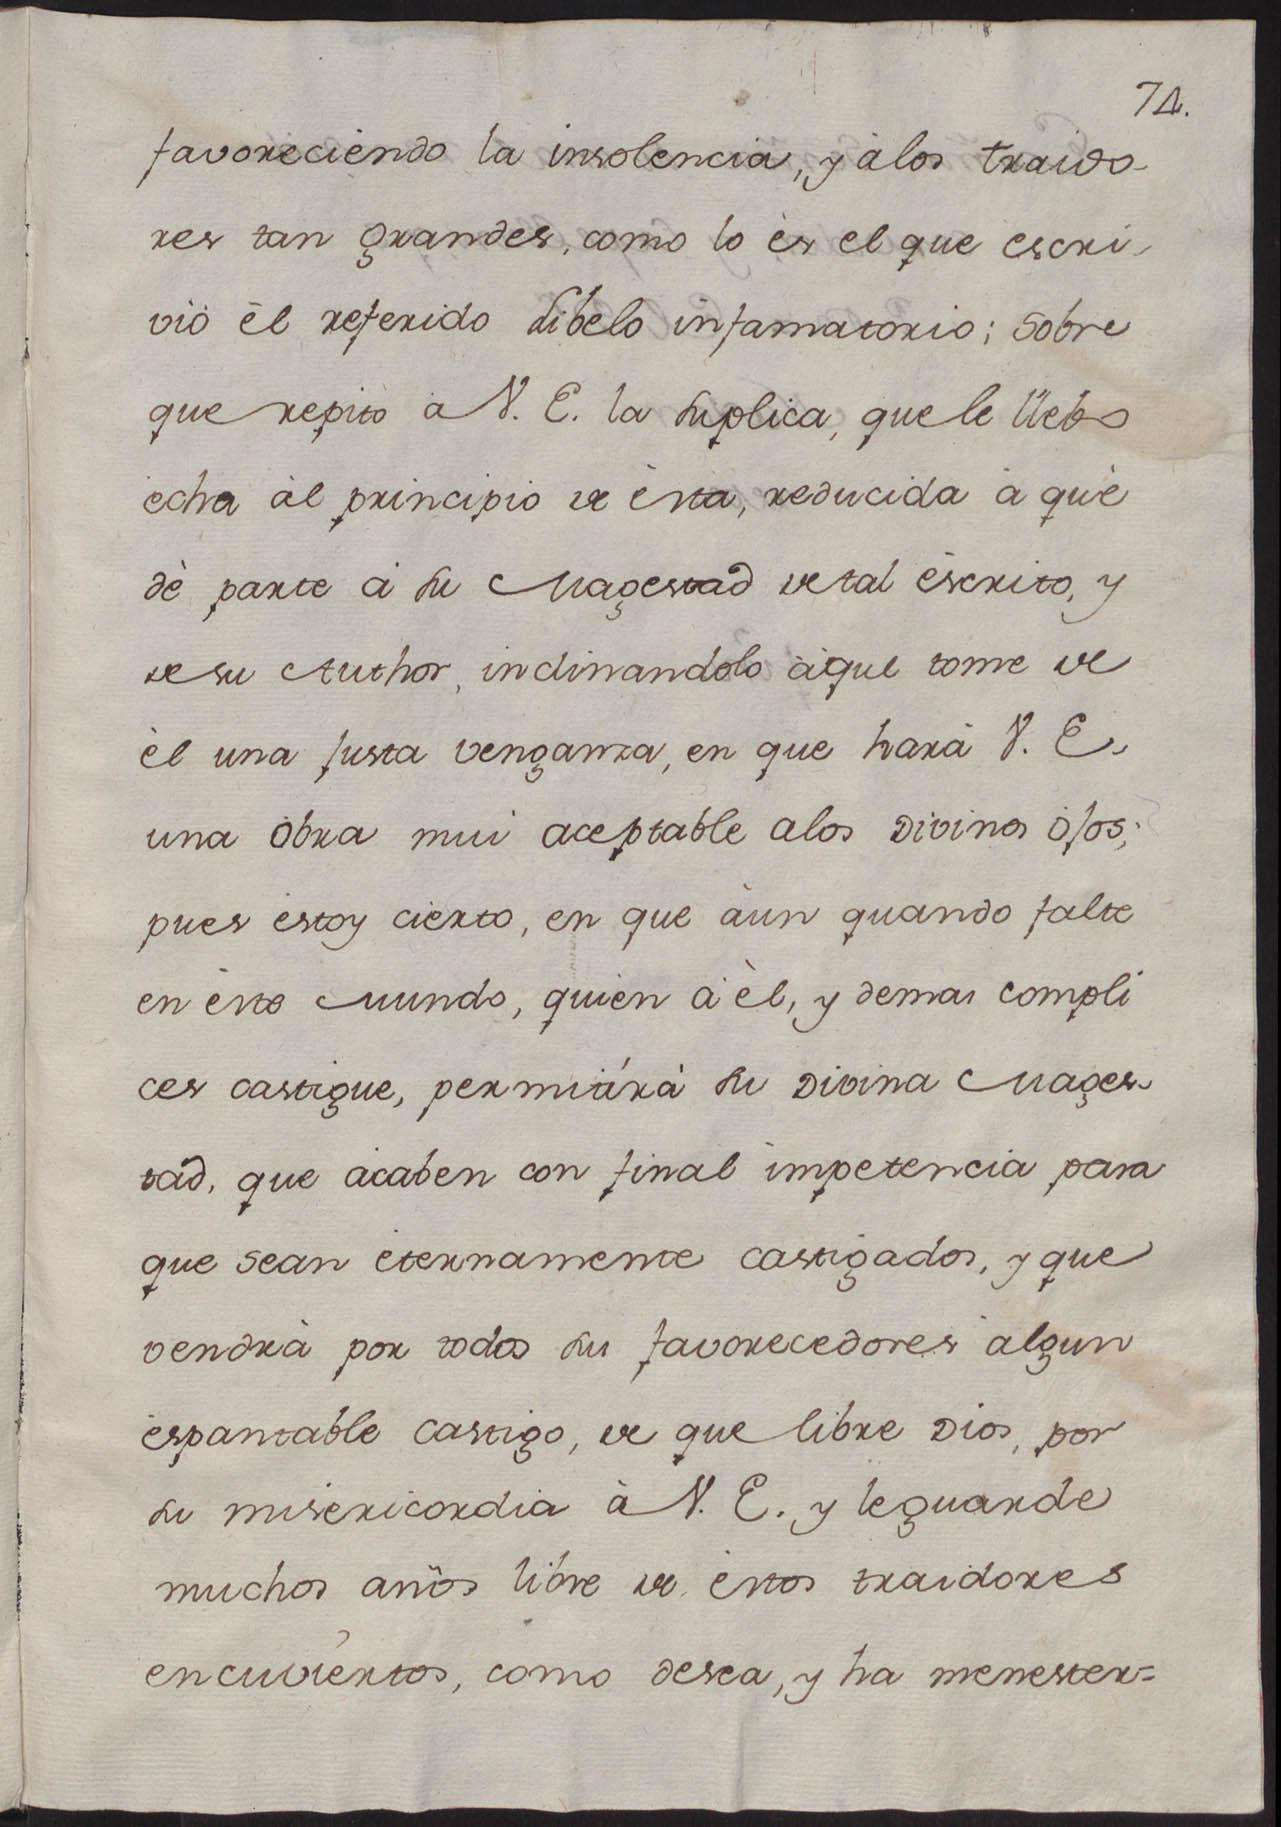 74.
favoreciendo la insolencia, y àlos traido-
res tan grandes, como lo ès el que escri-
viò èl referido Libelo infamatorio; sobre
que repito a V. E. la suplica, que le llebo
echa àl principio de èsta, reducida à què
dè parte à su Magestad de tal èscrito, y
de su Author, inclinandolo àque tome de
èl una justa venganza, en que harà V. E.
una òbra mui aceptable alos Divinos òjos;
pues èstoy cierto, en que àun quando falte
en èste Mundo, quien à èl, y demas compli
ces castigue, permitirà su Divina Mages-
tad, que àcaben con final impetencia para
que sean èternamente castigados, y que
vendrà por todos su favorecedores àlgun
èspantable castigo, de que libre Dios, por
su misericordia à V. E. y le guarde
muchos años libre de èstos traidores
encuviertos, como desea, y ha menester=